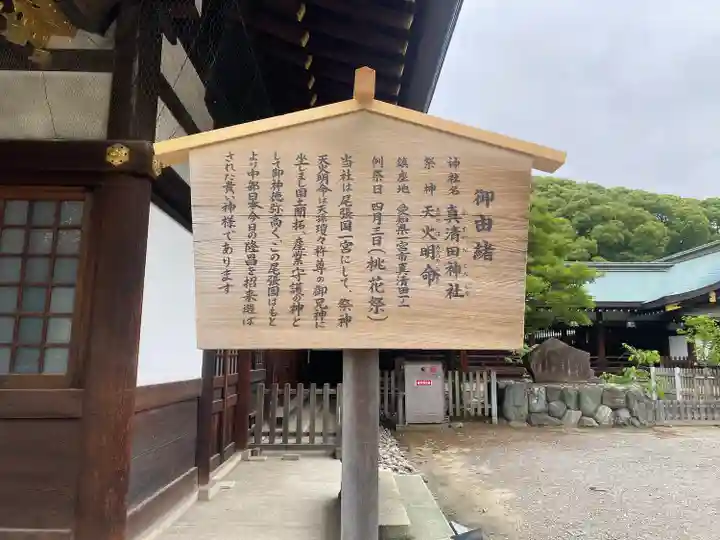 御由緒
神社名 真清田神社
祭神 天火明命
鎮座地 愛知県一宮市真清田一ノ一
例祭日 四月三日(桃花祭)
当社は尾張国一宮にして、祭神
天火明命は天孫瓊々杵尊の御兄神に
坐てまし国土開拓、産業守護の神と
して御神徳弥高く、この尾張国はもと
より中部日本今日の隆昌を招来遊ば
された貴い神様であります